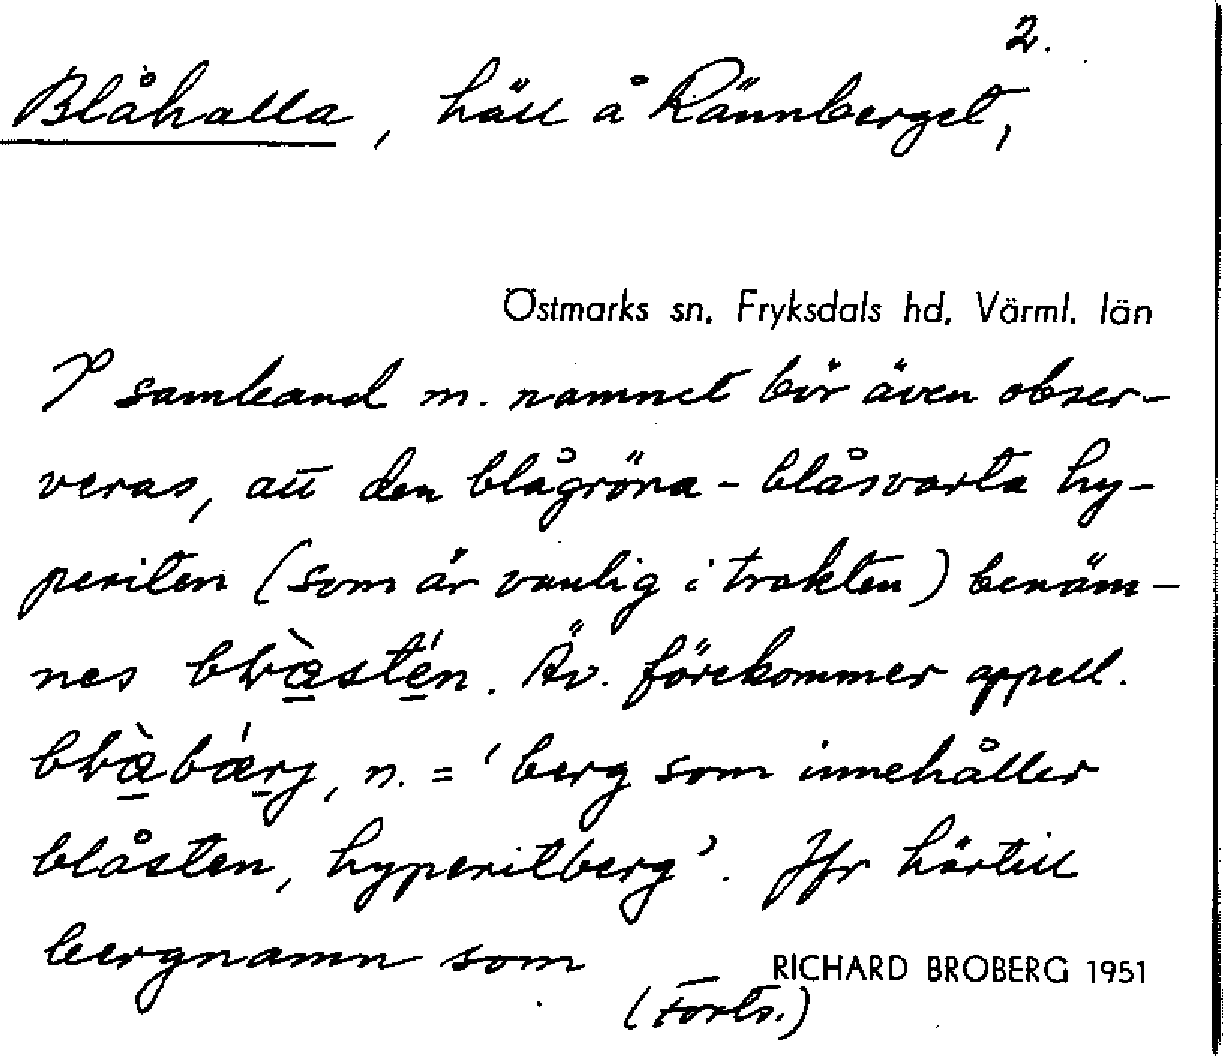 2.
Blåhalla, häll å Rännberget,
Östmarks sn. Fryksdals hd. Värml. län
I samband m. namnet bör även obser-
veras, att den blågröna - blåsvarta hy-
periten (som är vanlig i trakten) benäm-
nes . Äv. förekommer appell.
, n. = 'berg som innehåller
blåsten, hyperitberg'. Jfr härtill
bergnamn som
RICHARD BROBERG 1951
(Forts.)